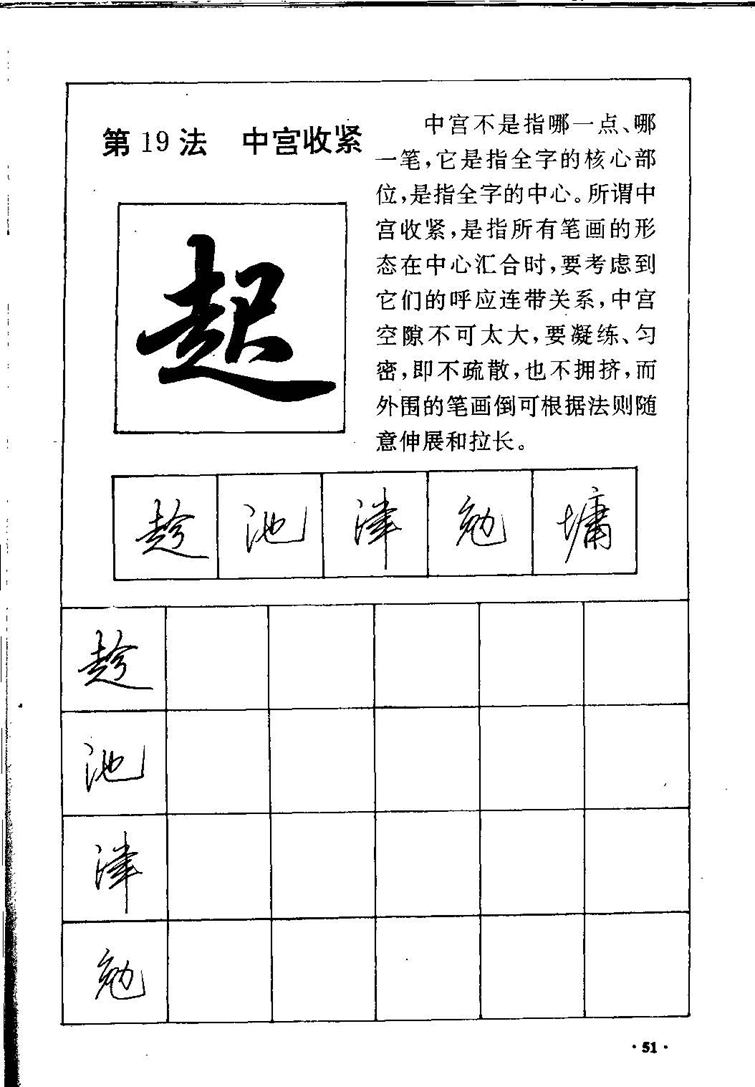 第19法 中宫收紧
中宫不是指哪一点、哪
一笔,它是指全字的核心部
位,是指全字的中心。所谓中
宫收紧,是指所有笔画的形
态在中心汇合时,要考虑到
它们的呼应连带关系,中宫
空隙不可太大,要凝练、匀
密,即不疏散,也不拥挤,而
外围的笔画倒可根据法则随
意伸展和拉长。
起
趁 池 津 勉 墉
趁
池
津
勉
·51·